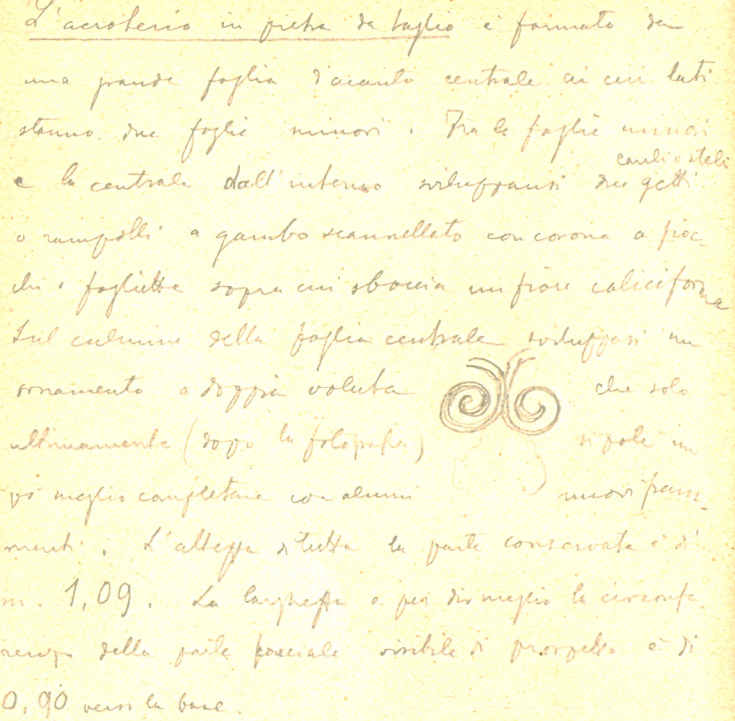 L'acroterio in pietra da taglio è formato da
una grande foglia d'acanto centrale ai cui lati
stanno due foglie minori. Tra le foglie minori
cauli o steli
e la centrale dall'interno sviluppansi due getti
o rampolli a gambo scannellato con corona a fioc-
chi o fogliette sopra cui sboccia un fiore caliciforme
Sul culmine della foglia centrale sviluppasi un
ornamento a doppia voluta che solo
ultimamente (dopo la fotografia) si potè un
pò meglio completare con alcuni nuovi fram-
menti. L'altezza di tutta la parte conservata è di
m. 1,09. La larghezza o per dir meglio la circonfe-
renza della parte visibile di prospetto è di
0,90 verso la base.